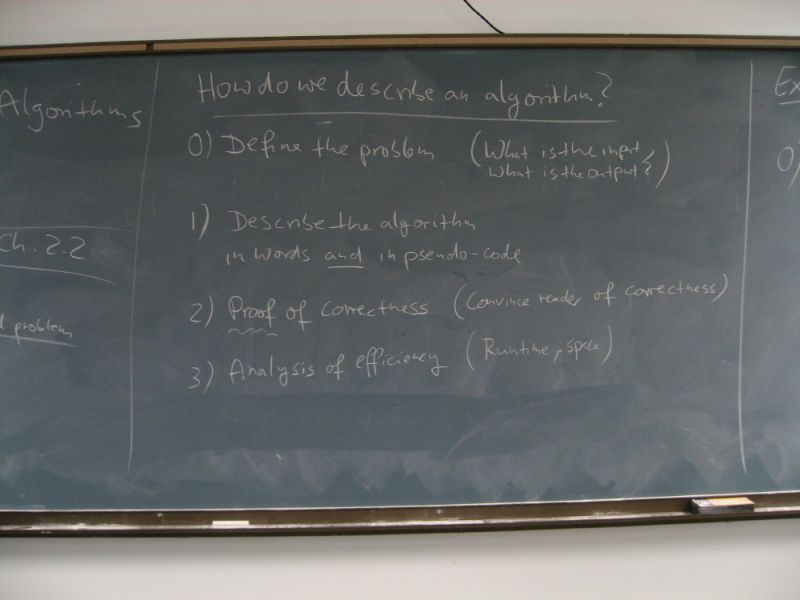 Algorithms
Ch. 2.2
problem
How do we describe an algorithm?
0) Define the problem (What is the input
What is the output?)
1) Describe the algorithm
in words and in pseudo-code
2) Proof of correctness (Convince reader of correctness)
3) Analysis of efficiency (Runtime, space)
Ex
0)